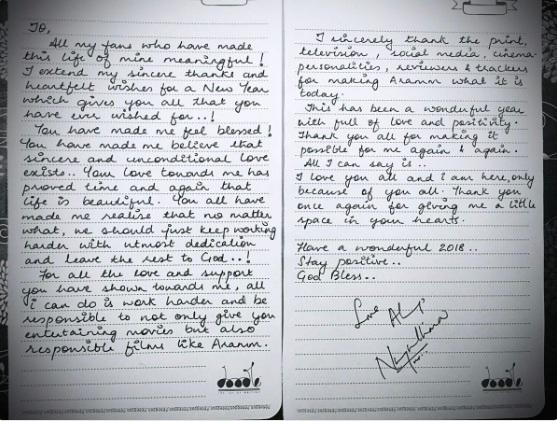 TO,
All my fans who have made
this life of mine meaningful!
I extend my sincere thanks and
heartfelt wishes for a New Year
which gives you all that you
have ever wished for..!
You have made me feel blessed!
You have made me believe that
sincere and unconditional love
exists.. Your love towards me has
proved time and again that
life is beautiful. You all have
made me realize that no matter
what, we should just keep working
harder with utmost dedication
and leave the rest to God..!
For all the love and support
you have shown towards me, all
i can do is work harder and be
responsible to not only give you
entertaining movies but also
responsible films like Aramm.
I sincerely thank the print,
television, social media, cinema
personalities, reviewers & trackers
for making Aramm what it is
today.
This has been a wonderful year
with full of love and positivity.
Thank you all for making it
possible for me again & again.
All I can say is..
I love you all and i am here, only
because of you all. Thank you
once again for giving me a little
space in your hearts.
Have a wonderful 2018..
Stay positive..
God Bless..
Love Always
Nayanthara